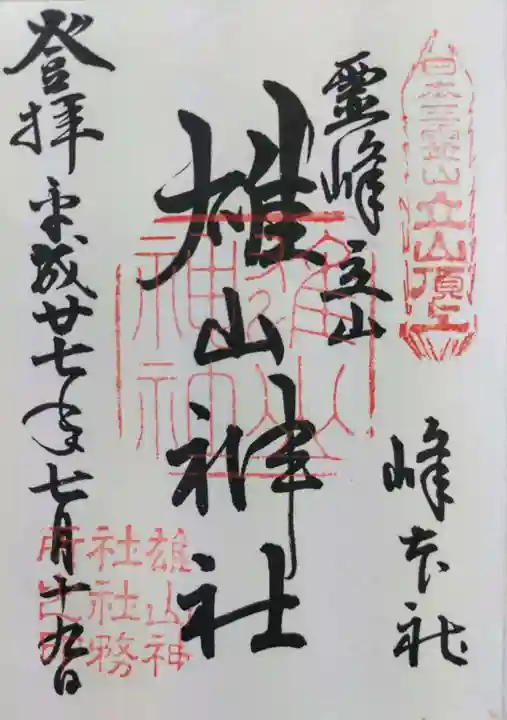 日本三霊山立山頂上
峰本社
霊峰立山
雄山神社
雄山神社
登拝平成廿七年七月十九日
雄山神
社社務
所之印